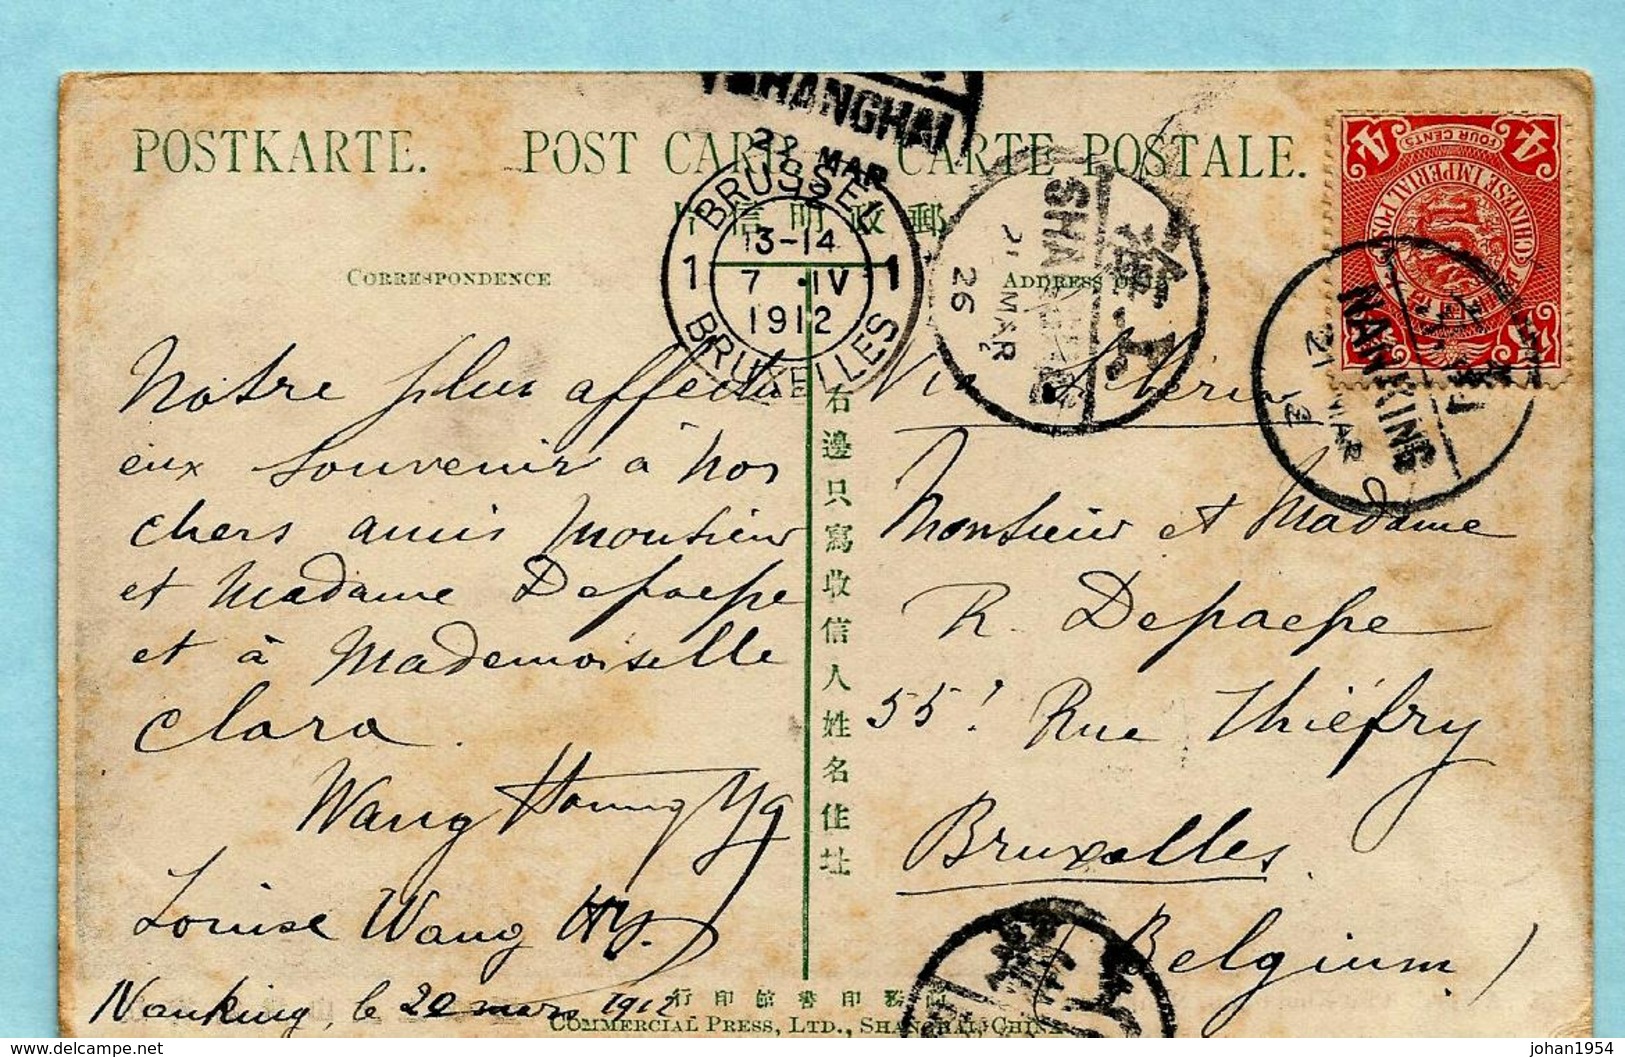 POSTKARTE. POST CARD CARTE POSTALE.
郵政明信片
CORRESPONDENCE
ADDRESS ONLY
SHANGHAI
22 MAR
BRUSSEL
1 13-14 1
7 IV
1912
BRUXELLES
SHA
MAR
26
CHINESE IMPERIAL POST
4 4
FOUR CENTS
NANKING
21
MAR
Notre plus affectu
eux souvenir à nos
chers amis Monsieur
et Madame Depaepe
et à Mademoiselle
Clara.
Wang
Louise Wang Hy.
Nanking, le 20 mars 1912
右邊只寫收信人姓名住址
Via Sibérie
Monsieur et Madame
R. Depaepe
55! Rue Thiéfry
Bruxelles.
Belgium)
商務印書館印行
COMMERCIAL PRESS, LTD., SHANGHAI, CHINA
johan1954